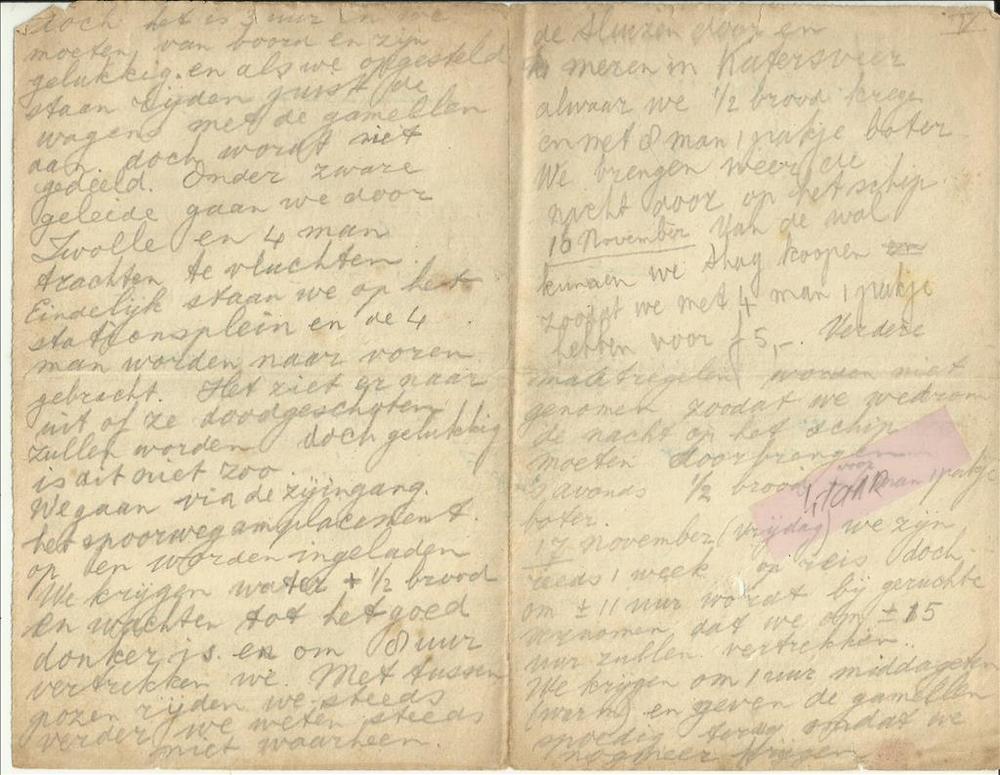 doch het is 3 uur en we
moeten van boord en zijn
gelukkig en als we opgesteld
staan rijden juist de
wagens met de gamellen
aan doch wordt niet
gedeeld. Onder zware
geleide gaan we door
Zwolle en 4 man
trachten te vluchten.
Eindelijk staan we op het
stationsplein en de 4
man worden naar voren
gebracht. Het ziet er naar
uit of ze doodgeschoten
zullen worden doch gelukkig
is dit niet zoo.
We gaan via de zijingang
het spoorwegamplacement
op en worden ingeladen
We krijgen water + 1/2 brood
en wachten tot het goed
donker is en om 8 uur
vertrekken we. Met tussen
pozen rijden we steeds
verder we weten steeds
niet waarheen.
IV
de sluizen door en
meren in Katersveer
alwaar we 1/2 brood krege
en met 8 man 1 pakje boter
We brengen weer de
nacht door op het schip.
16 November Van de wal
kunnen we shag koopen
zoodat we met 4 man 1 pakje
hebben voor f 5,-. Verdere
maatregelen worden niet
genomen zoodat we wederom
de nacht op het schip
moeten doorbrengen
's avonds 1/2 brood voor man 1 pakje
boter.
17 November (vrijdag) we zijn
reeds 1 week op reis doch
om ± 11 uur wordt bij geruchte
vernomen dat we om ± 15
uur zullen vertrekken.
We krijgen om 1 uur middageten
(warm) en geven de gamellen
spoedig terug omdat we
nog meer krijgen